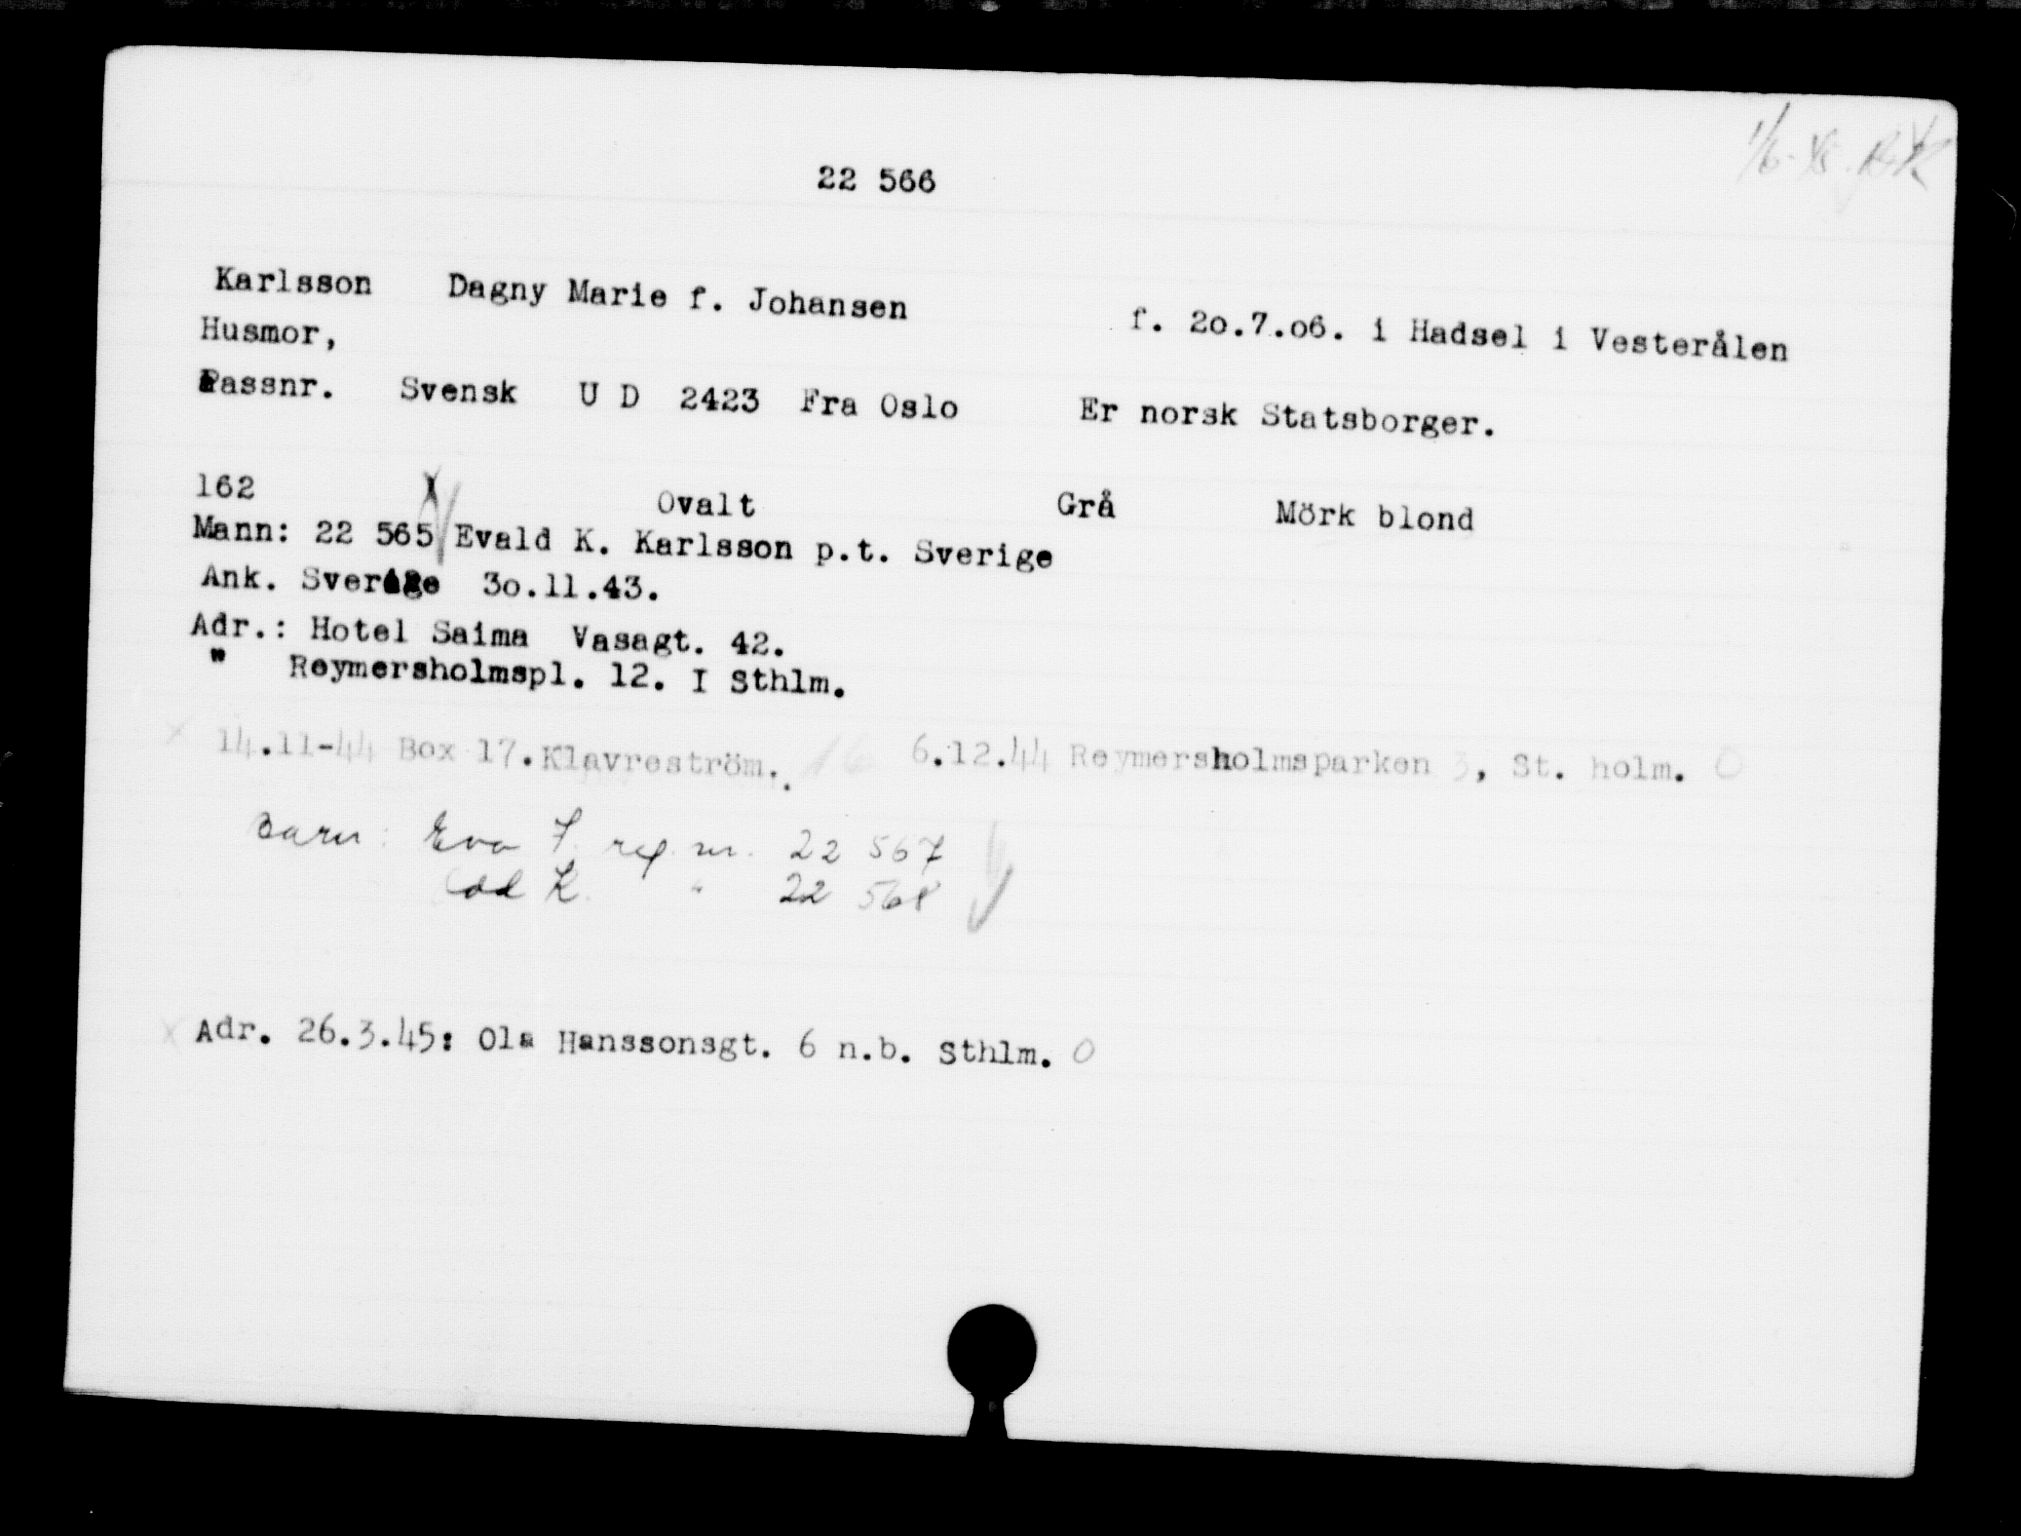 22 566
Karlsson Dagny Marie f. Johansen f. 2o.7.o6. i Hadsel i Vesterålen
Husmor,
Passnr. Svensk U D 2423 Fra Oslo Er norsk Statsborger.
162 Ovalt Grå Mörk blond
Mann: 22 565 Evald K. Karlsson p.t. Sverige
Ank. Sverige 3o.11.43.
Adr.: Hotel Saima Vasagt. 42.
" Reymersholmspl. 12. I Sthlm.
x 14.11-44 Box 17. Klavreström. 6.12.44 Reymersholmsparken 3, St. holm. O
Barn: Eva F. reg. nr. 22 567
K. " 22 568
x Adr. 26.3.45: Ola Hanssonsgt. 6 n.b. Sthlm. O